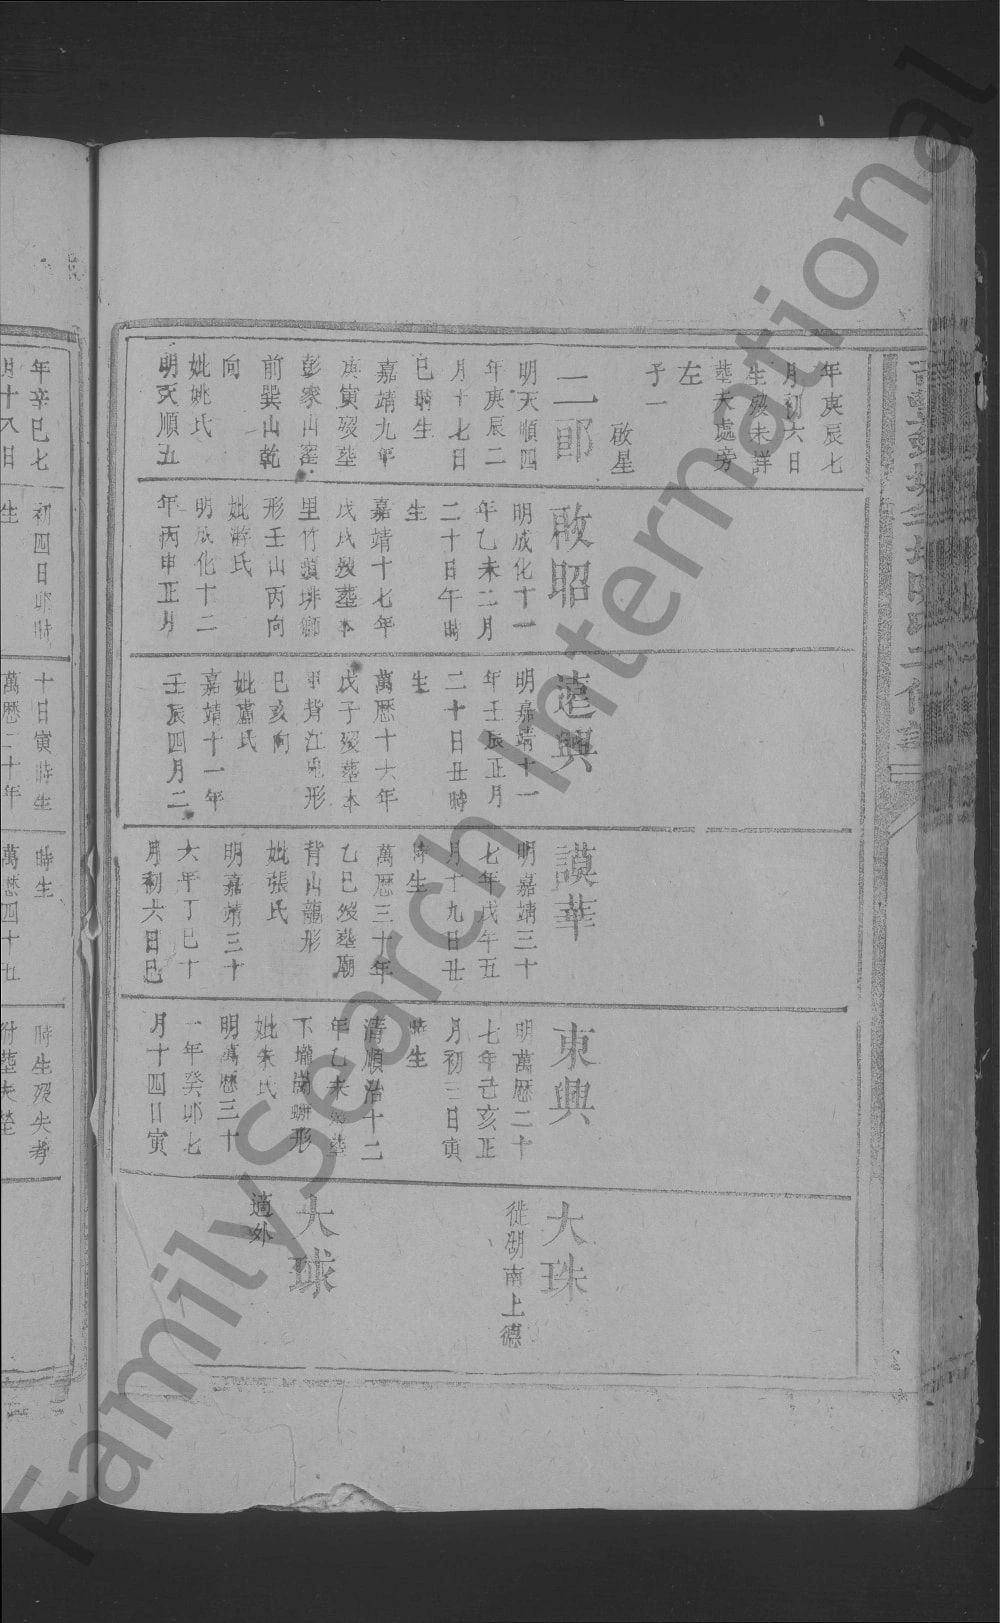 年庚辰七
月初六日
生歿未詳
塟夫處旁
左
子一
啟星
二郎
明天順四
年庚辰二
月十七日
巳時生
嘉靖九年
庚寅歿塟
彭家山窰
前巽山乾
向
妣姚氏
明天順五
啟昭
明成化十一
年乙未二月
二十日午時
生
嘉靖十七年
戊戌歿塟本
里竹
形壬山丙向
妣游氏
明成化十二
年丙申正月
遠興
明嘉靖十一
年壬辰正月
二十日丑時
生
萬歷十六年
戊子歿塟本
背江 形
巳亥向
妣盧氏
嘉靖十一年
壬辰四月二
謨華
明嘉靖三十
七年戊午五
月十九日丑
時生
萬歷三十年
乙巳歿塟廟
背山龍形
妣張氏
明嘉靖三十
六年丁巳十
月初六日巳
東興
明萬歷二十
七年己亥正
月初三日寅
時生
清順治十二
年乙未歿塟
下壠 形
妣朱氏
明萬歷三十
一年癸卯七
月十四日寅
大珠
徙湖南上德
大球
適外
年辛巳七
月十八日
初四日卯時
生
十日寅時生
萬歷二十年
時生
萬歷四十五
時生歿失考
附塟夫塋
FamilySearch International